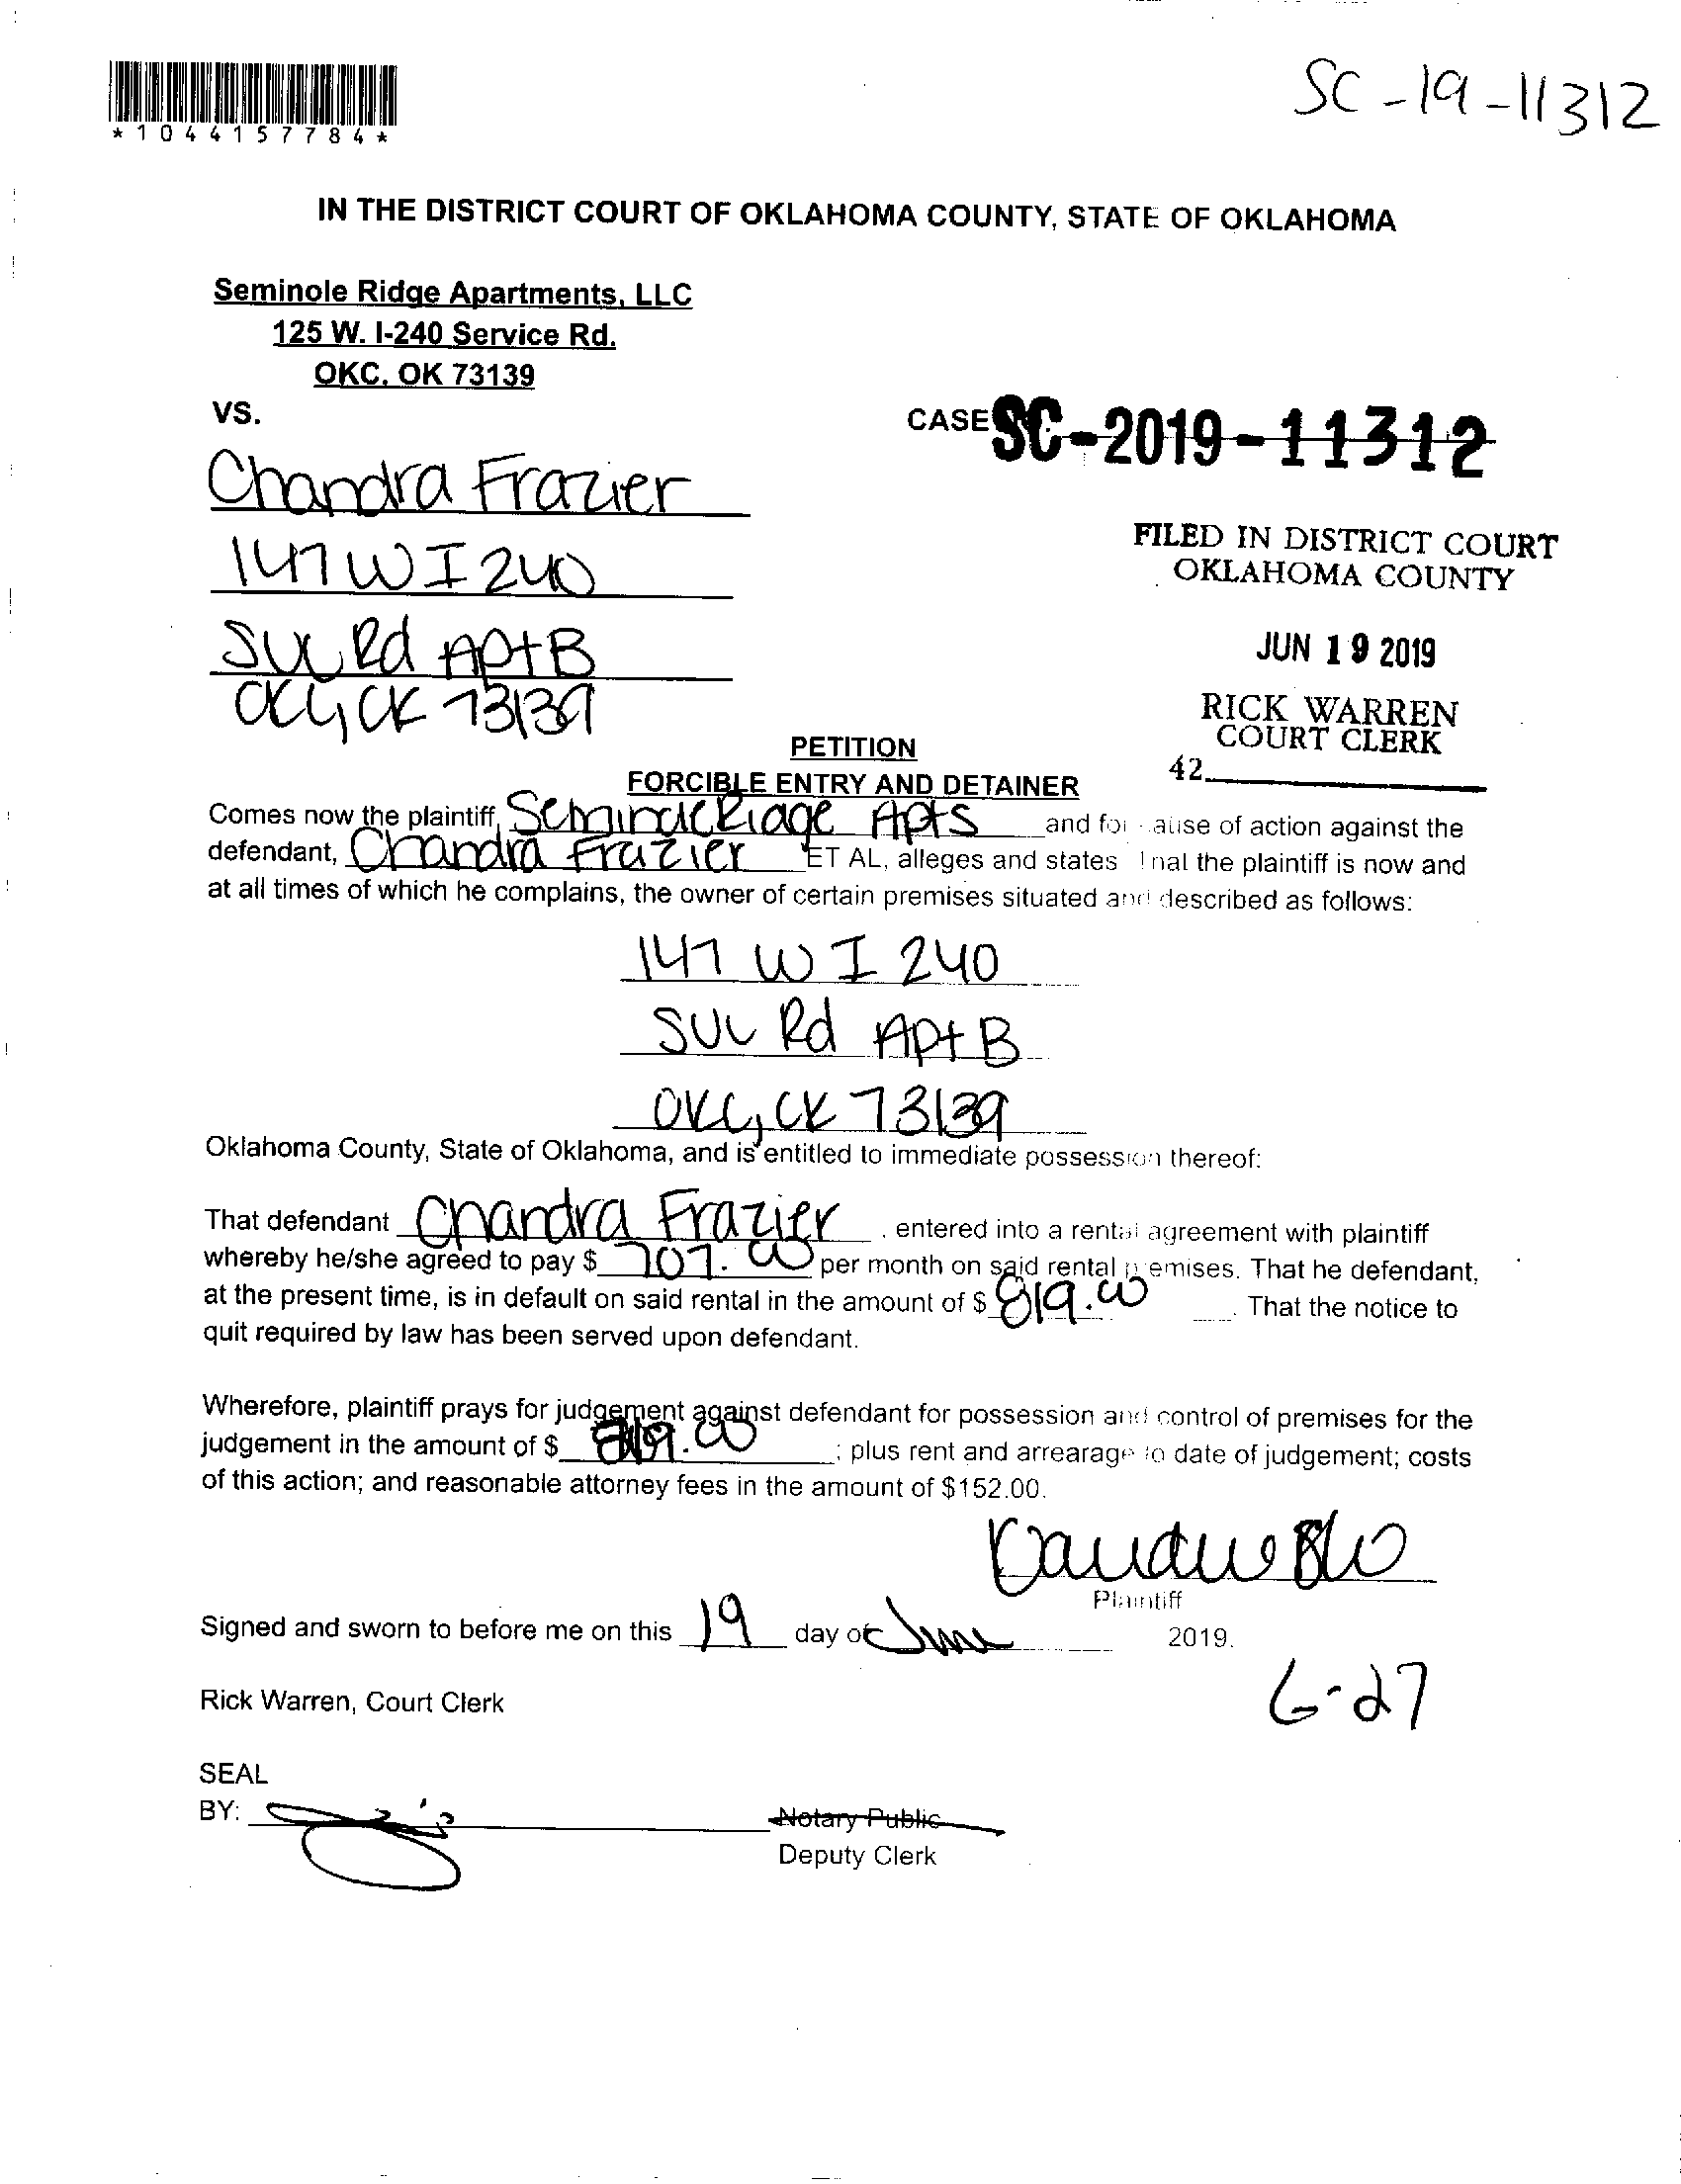 SC-19-11312
*1044157784*
IN THE DISTRICT COURT OF OKLAHOMA COUNTY, STATE OF OKLAHOMA
Seminole Ridge Apartments, LLC
125 W. I-240 Service Rd.
OKC, OK 73139
VS.
CASE SC-2019-11312
Chandra Frazier
147 W I 240
Rd Apt B
OKC, OK 73139
FILED IN DISTRICT COURT
OKLAHOMA COUNTY
JUN 19 2019
RICK WARREN
COURT CLERK
42
PETITION
FORCIBLE ENTRY AND DETAINER
Comes now the plaintiff, Seminole Ridge Apts and for cause of action against the
defendant, Chandra Frazier ET AL, alleges and states that the plaintiff is now and
at all times of which he complains, the owner of certain premises situated and described as follows:
147 W I 240
Rd Apt B
OKC, OK 73139
Oklahoma County, State of Oklahoma, and is entitled to immediate possession thereof:
That defendant Chandra Frazier, entered into a rental agreement with plaintiff
whereby he/she agreed to pay $ 707.00 per month on said rental premises. That he defendant,
at the present time, is in default on said rental in the amount of $ 819.00. That the notice to
quit required by law has been served upon defendant.
Wherefore, plaintiff prays for judgement against defendant for possession and control of premises for the
judgement in the amount of $ 819.00; plus rent and arrearage to date of judgement; costs
of this action; and reasonable attorney fees in the amount of $152.00.
Plaintiff
Signed and sworn to before me on this 19 day of June 2019.
6-27
Rick Warren, Court Clerk
SEAL
BY:
Notary Public
Deputy Clerk